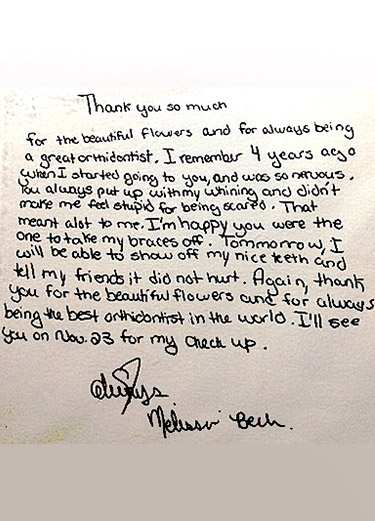 Thank you so much
for the beautiful flowers and for always being
a great orthidontist. I remember 4 years ago
when I started going to you, and was so nervous.
You always put up with my whining and didn't
make me feel stupid for being scared. That
meant alot to me. I'm happy you were the
one to take my braces off. Tommorrow, I
will be able to show off my nice teeth and
tell my friends it did not hurt. Again, thank
you for the beautiful flowers and for always
being the best orthidontist in the world. I'll see
you on Nov. 23 for my check up.
Always,
Melissa